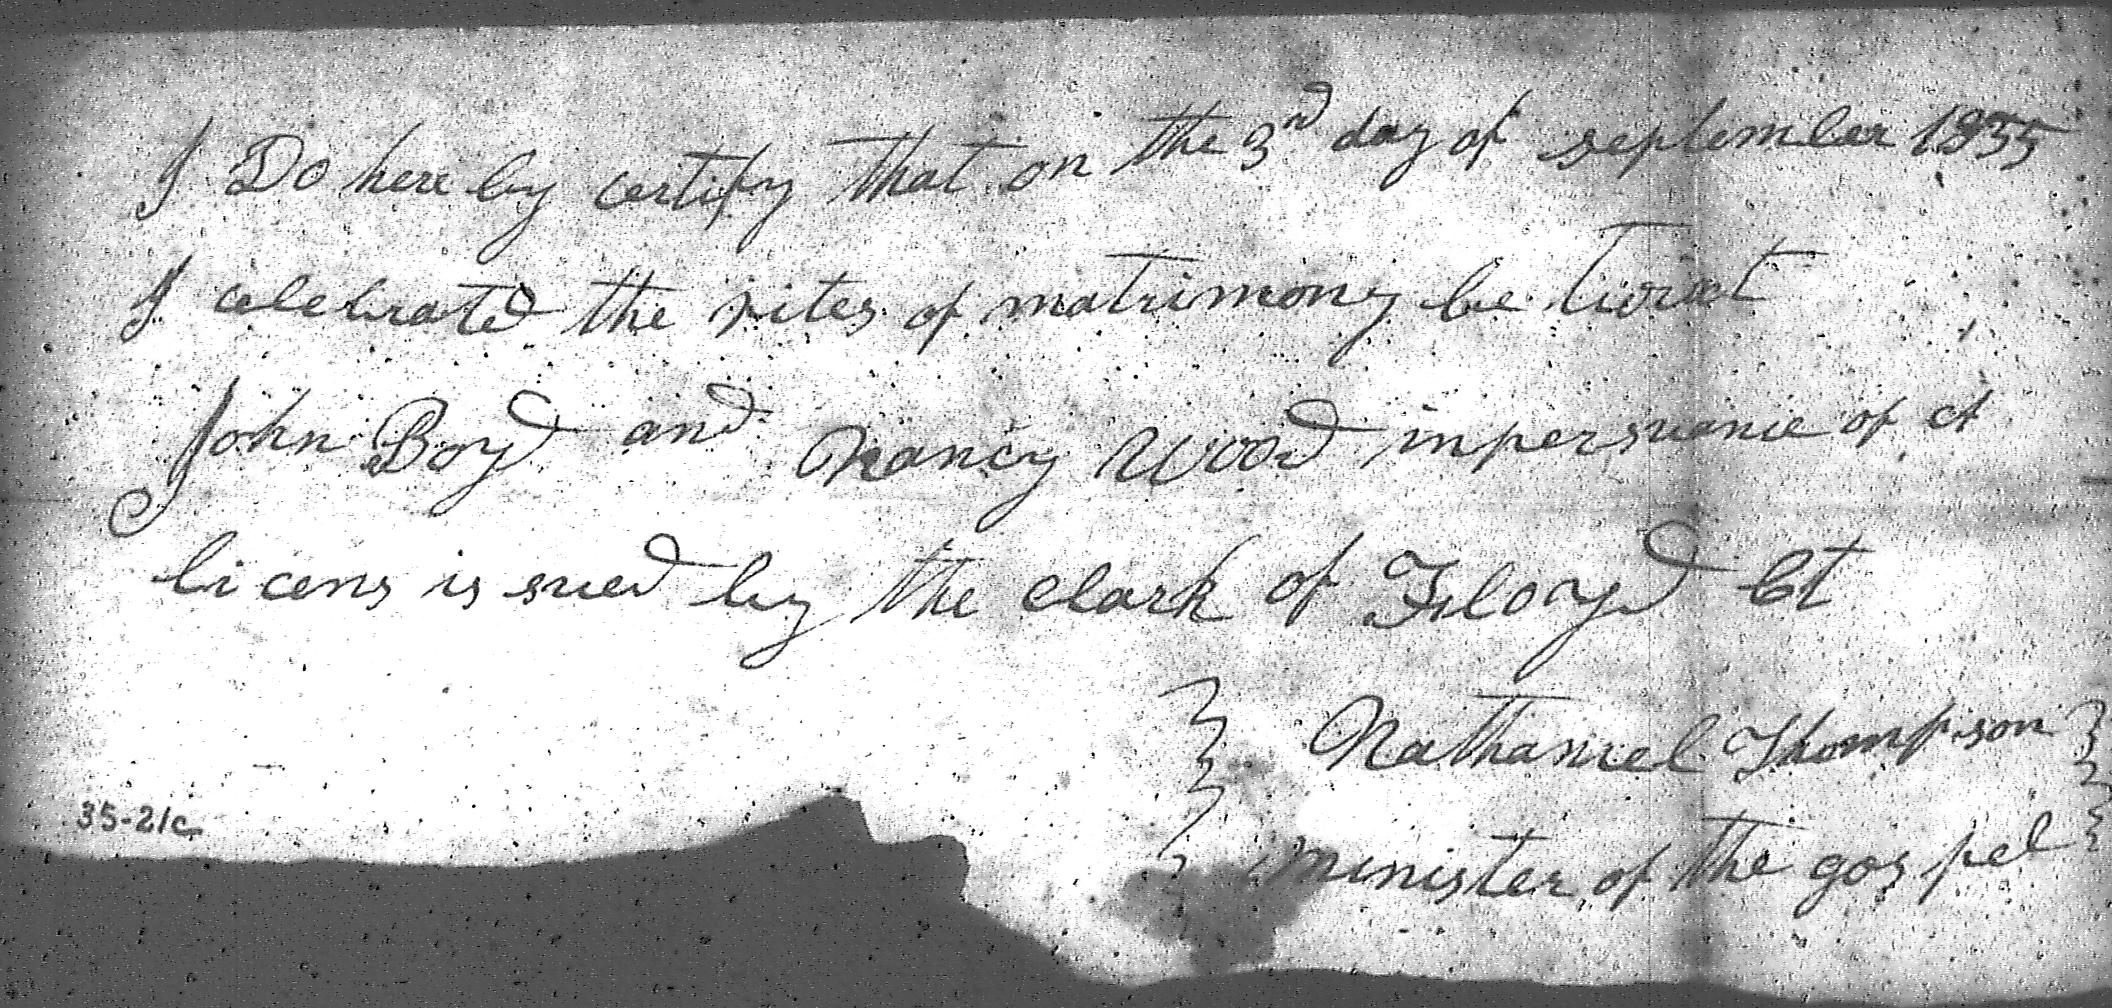 I Do here by certify that on the 3rd day of september 1835
I celebrated the rites of matrimony be twixt
John Boyd and Nancy Wood in persuance of a
licens is sued by the clark of Floyd Ct
Nathaniel Thompson
minister of the gospel
35-21c